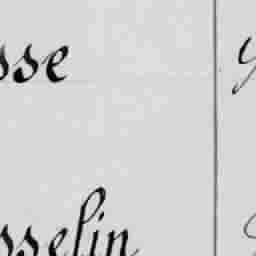 sse
sselin